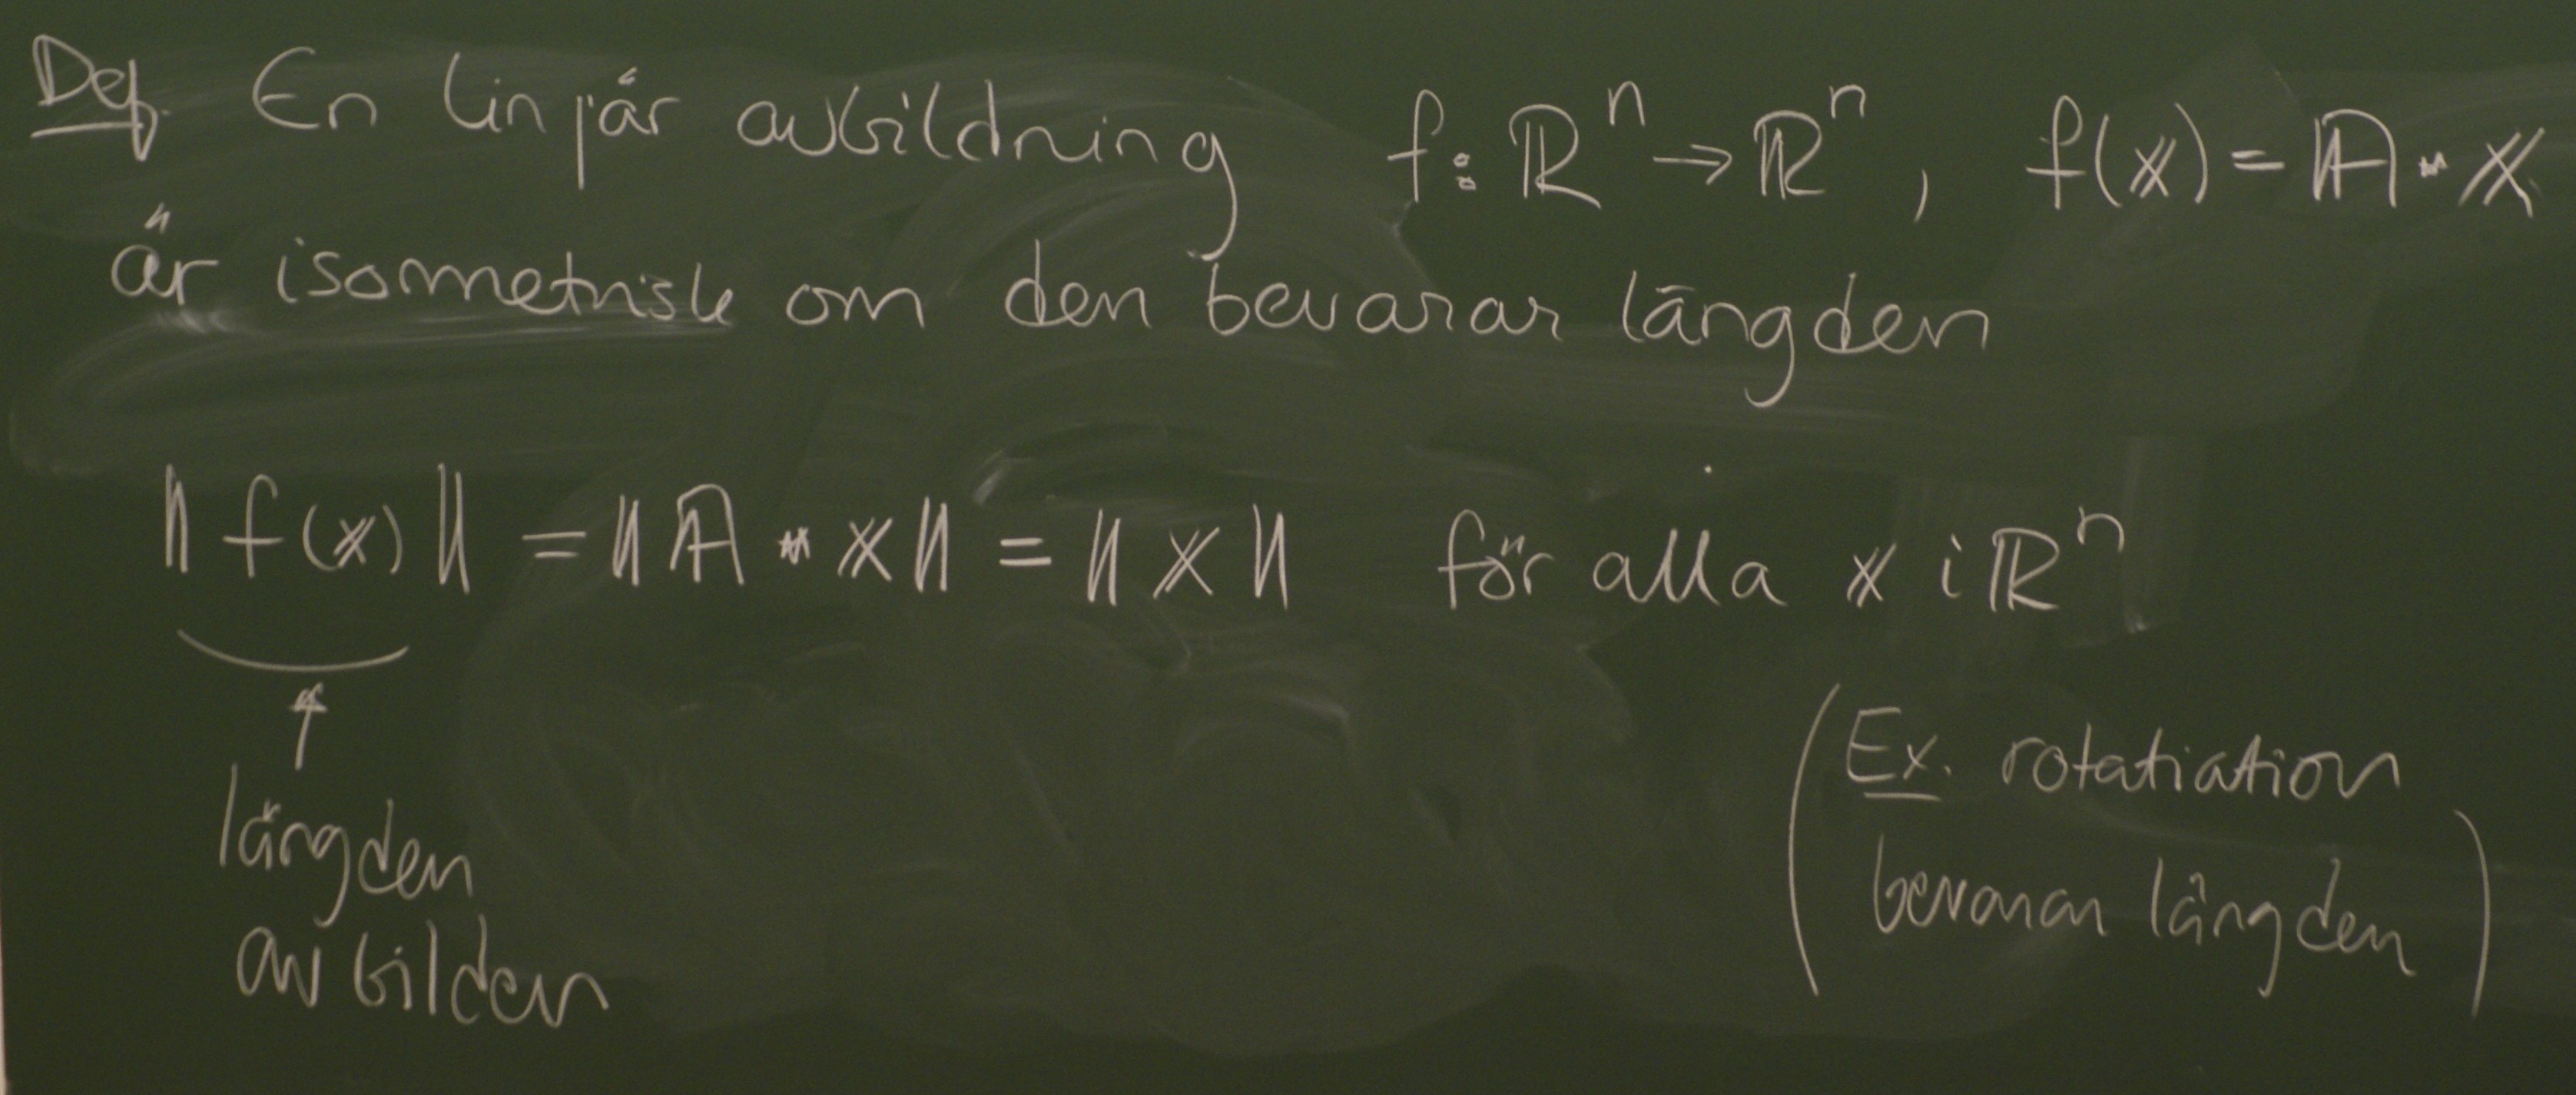 Def. En linjär avbildning f: ℝⁿ → ℝⁿ, f(𝕩) = 𝔸 · 𝕩
är isometrisk om den bevarar längden
‖f(𝕩)‖ = ‖𝔸 · 𝕩‖ = ‖𝕩‖ för alla 𝕩 i ℝⁿ
↑
längden
av bilden
(Ex. rotatiation
bevarar längden)